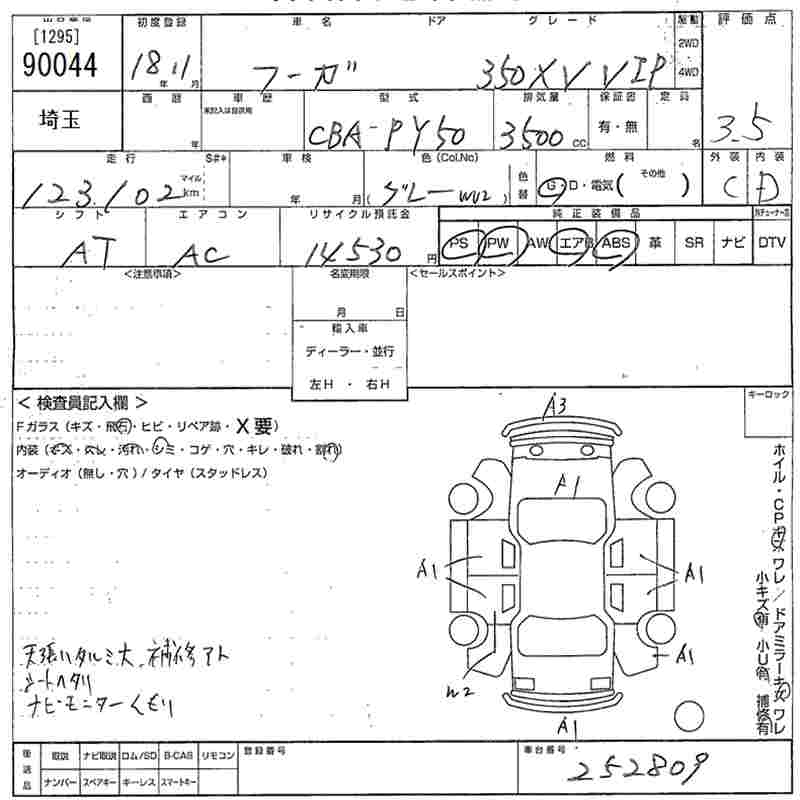 [1295]
90044
初度登録
車名
ドア
グレード
駆動
評価点
18年11月
フーガ
350XV VIP
2WD
4WD
3.5
埼玉
西暦
年
車歴
未記入は自家用
型式
CBA-PY50
排気量
3500cc
保証書
有・無
定員
名
走行
S#*
車検
色(Col.No)
色替
燃料
外装
内装
123,102
マイル
km
年 月
(グレー WV2)
G・D・電気(その他)
C
D
シフト
エアコン
リサイクル預託金
純正装備品
AT
AC
14530円
PS
PW
AW
エアB
ABS
革
SR
ナビ
DTV
<注意事項>
名変期限
<セールスポイント>
月 日
輸入車
ディーラー・並行
左H・右H
<検査員記入欄>
キーロック
Fガラス(キズ・飛石・ヒビ・リペア跡・X要)
内装(キズ・スレ・汚れ・シミ・コゲ・穴・キレ・破れ・割れ)
オーディオ(無し・穴)/タイヤ(スタッドレス)
A3
A1
A1
A1
A1
W2
A1
天張ハタルミ大、補修アト
シートヘタリ
ナビ・モニターくもり
ホイル・CPキズ ワレ/ドアミラーキズ ワレ
小キズ有 小U有 補修有
後送品
取説
ナビ取説
ロム/SD
B-CAS
リモコン
ナンバー
スペアキー
キーレス
スマートキー
登録番号
車台番号
252809